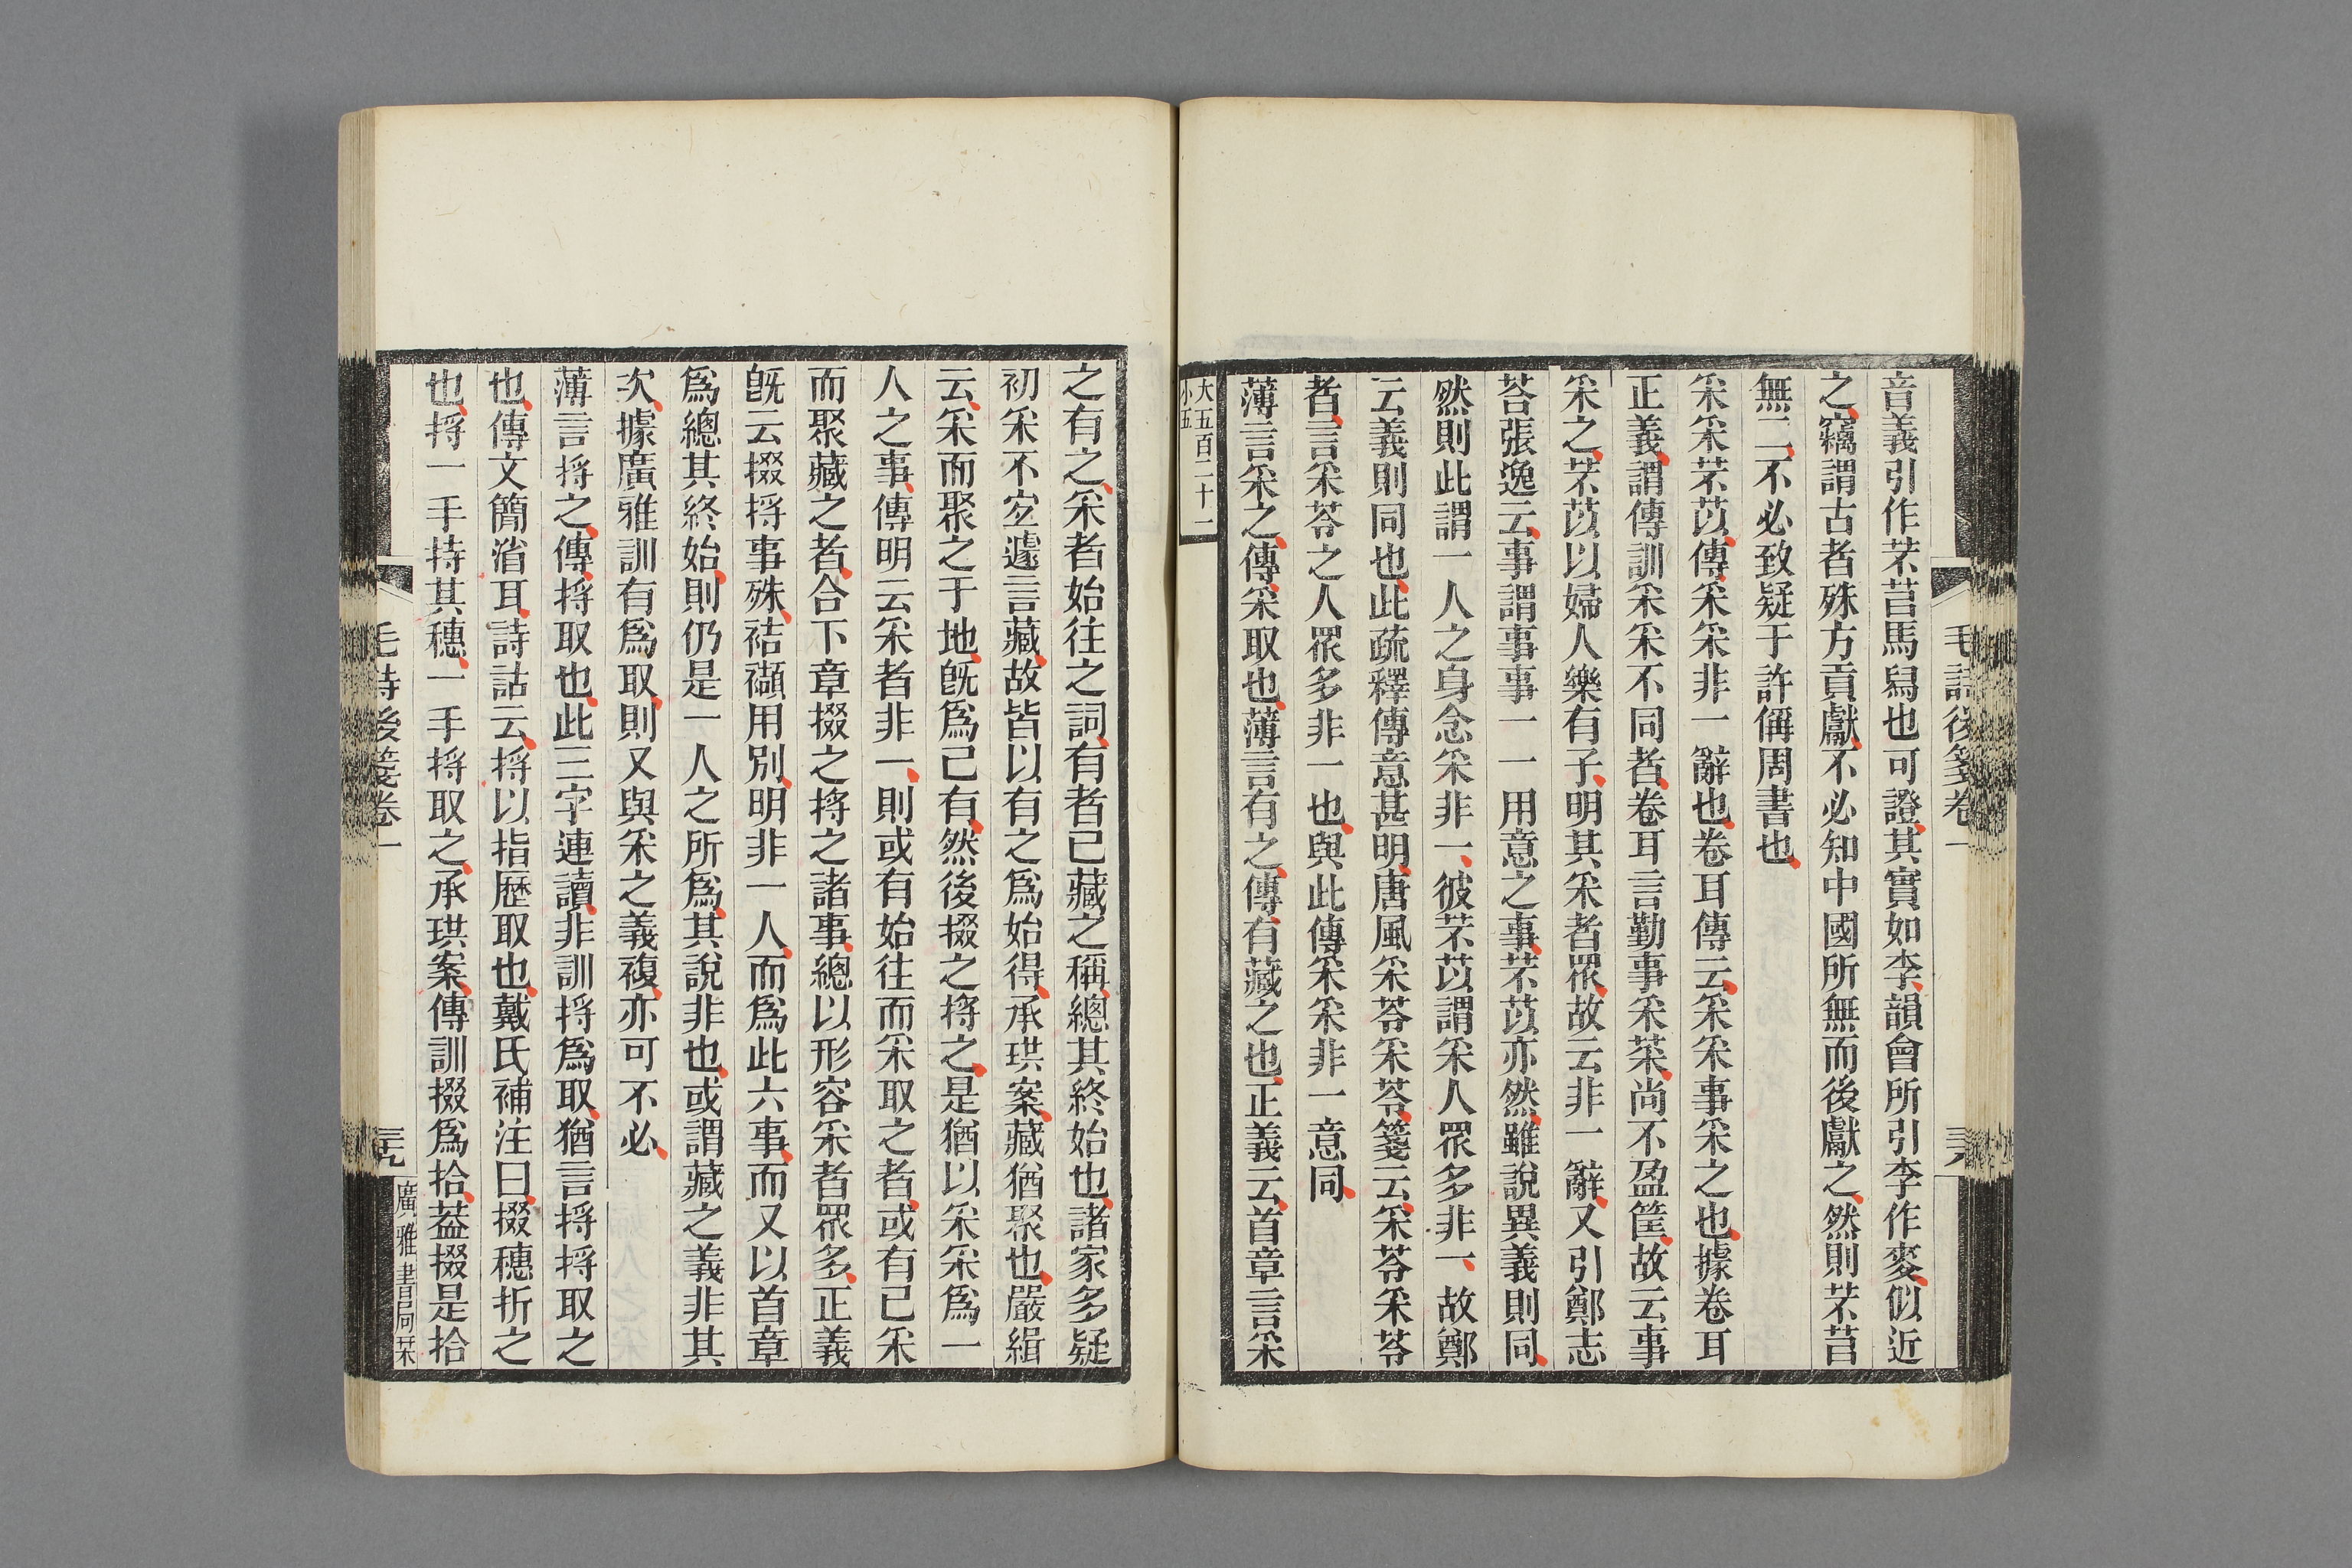 毛詩後箋卷一
音義引作芣苢馬舄也可證其實如李韻會所引李作麥似近
之竊謂古者殊方貢獻不必知中國所無而後獻之然則芣苢
無二不必致疑于許偁周書也
采采芣苡傳采采非一辭也卷耳傳云采采事采之也據卷耳
正義謂傳訓采采不同者卷耳言勤事采菜尚不盈筐故云事
采之芣苡以婦人樂有子明其采者眾故云非一辭又引鄭志
荅張逸云事謂事事一一用意之事芣苡亦然雖說異義則同
然則此謂一人之身念采非一彼芣苡謂采人眾多非一故鄭
云義則同也此疏釋傳意甚明唐風采苓采苓箋云采苓采苓
者言采苓之人眾多非一也與此傳采采非一意同
薄言采之傳采取也薄言有之傳有藏之也正義云首章言采
大五百二十一
小五
之有之采者始往之詞有者已藏之稱總其終始也諸家多疑
初采不宐遽言藏故皆以有之爲始得承珙案藏猶聚也嚴緝
云采而聚之于地旣爲己有然後掇之捋之是猶以采采爲一
人之事傳明云采者非一則或有始往而采取之者或有已采
而聚藏之者合下章掇之捋之諸事總以形容采者眾多正義
旣云掇捋事殊袺襭用別明非一人而爲此六事而又以首章
爲總其終始則仍是一人之所爲其說非也或謂藏之義非其
次據廣雅訓有爲取則又與采之義複亦可不必
薄言捋之傳捋取也此三字連讀非訓捋爲取猶言捋捋取之
也傳文簡渻耳詩詁云捋以指歷取也戴氏補注曰掇穗折之
也捋一手持其穗一手捋取之承珙案傳訓掇爲拾葢掇是拾
毛詩後箋卷一
三十九
廣雅書局栞